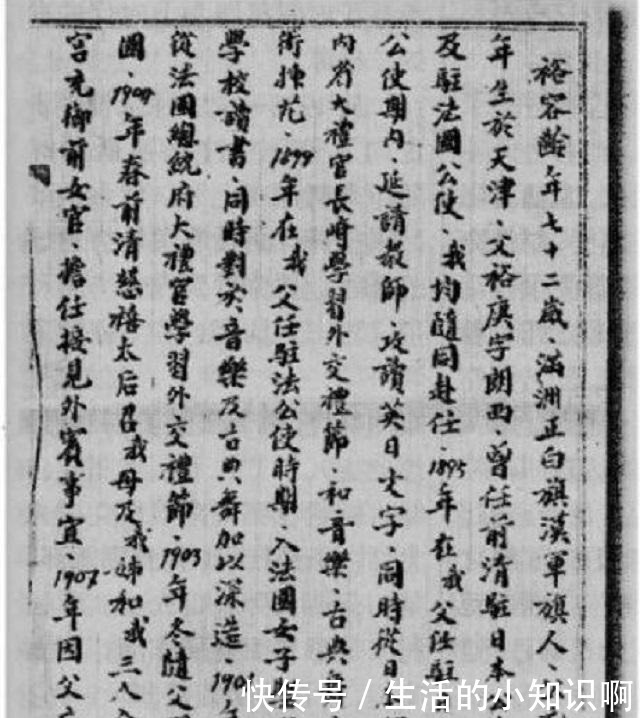 裕容齡、年七十二歲、滿洲正白旗漢軍旗人、
年生於天津、父裕庚字朗西、曾任前清駐日本
及駐法國公使、我均隨同赴任、1895年在我父任駐
公使期內、延請教師、攻讀英日文字、同時從日
內省大禮官長崎學習外交禮節、和音樂、古典
術揀花、1899年在我父任駐法公使時期、入法國女子
學校讀書、同時對於音樂及古典舞加以深造、190
從法國總統府大禮官學習外交禮節、1903年冬隨父
國、1904年春前清慈禧太后召我母及我姊和我三人入
宮充御前女官、擔任接見外賓事宜、1907年因父
快传号/生活的小知识啊